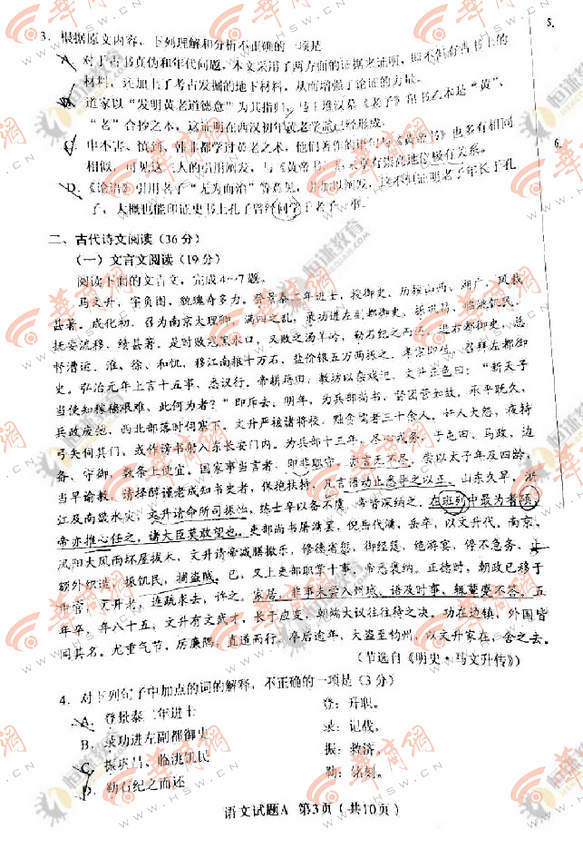 3. 根据原文内容，下列理解和分析不正确的一项是
A. 对于古书真伪和年代问题，本文采用了两方面的证据来证明，即不但有古书上的
材料，还加上了考古发掘的地下材料，从而增强了论证的力量。
B. 道家以“发明黄老道德意”为其指归，马王堆汉墓《老子》帛书乙本是“黄”、
“老”合抄之本，这证明在西汉初年黄老学说已经形成。
C. 申不害、慎到、韩非都学过黄老之术，他们著作的语句与《黄帝书》也多有相同
相似，可见这三人的引用阐发，与《黄帝书》
D. 《论语》引用老子“无为而治”等意见，并加以阐发，这不但证明老子年长于孔
子，大概也能印证史书上孔子曾经问学于老子一事。
二、古代诗文阅读（36分）
（一）文言文阅读（19分）
阅读下面的文言文，完成4～7题。
马文升，字负图，貌瑰奇多力。登景泰二年进士，授御史。历按山西、湖广，风裁
甚著。成化初，召为南京大理卿。满四之乱，录功进左副都御史。振巩昌、临洮饥民，
抚安流移。绩甚著。是时败寇黑水口，又败之汤羊岭，勒石纪之而还。进右都御史，总
督漕运。淮、徐、和饥，移江南粮十万石、盐价银五万两振之。孝宗即位，召拜左都御
史。弘治元年上言十五事，悉议行。帝耕藉田，教坊以杂戏进。文升正色曰：“新天子
当使知稼穑艰难，此何为者？”即斥去。明年，为兵部尚书，督团营如故。承平既久，
兵政废弛，西北部落时伺塞下。文升严核诸将校，黜贪懦者三十余人。奸人大怨，夜持
弓矢伺其门，或作谤书射入东长安门内。为兵部十三年，尽心戎务，于屯田、马政、边
备、守御，数条上便宜。国家事当言者，即非职守，亦言无不尽。尝以太子年及四龄，
当早谕教。请择醇谨老成知书史者，保抱扶持，凡言语动止悉导之以正。山东久旱，浙
江及南畿水灾，文升请命所司振恤，练士卒以备不虞。帝皆深纳之。在班列中最为耆硕，
帝亦推心任之，诸大臣莫敢望也。吏部尚书屠滽罢，倪岳代滽，岳卒，以文升代。南京、
凤阳大风雨坏屋拔木，文升请帝减膳撤乐，修德省愆，御经筵，绝游宴，停不急务，止
额外织造，振饥民，捕盗贼。已，又上吏部职掌十事，帝悉褒纳。正德时，朝政已移于
中官，文升老，连疏求去，许之。家居，非事未尝入州城。语及时事，辄颦蹙不答。五
年卒，年八十五。文升有文武才，长于应变，朝端大议往往待之决。功在边镇，外国皆
闻其名。尤重气节，厉廉隅，直道而行。卒后逾年，大盗至钧州，以文升家在，舍之去。
（节选自《明史·马文升传》）
4. 对下列句子中加点的词的解释，不正确的一项是（3分）
A. 登景泰二年进士　　登：升职。
B. 录功进左副都御史　　录：记载。
C. 振巩昌、临洮饥民　　振：救济。
D. 勒石纪之而还　　勒：铭刻。
语文试题A　第3页（共10页）
5.
6.
华商网
WWW.HSW.CN
恒谦教育